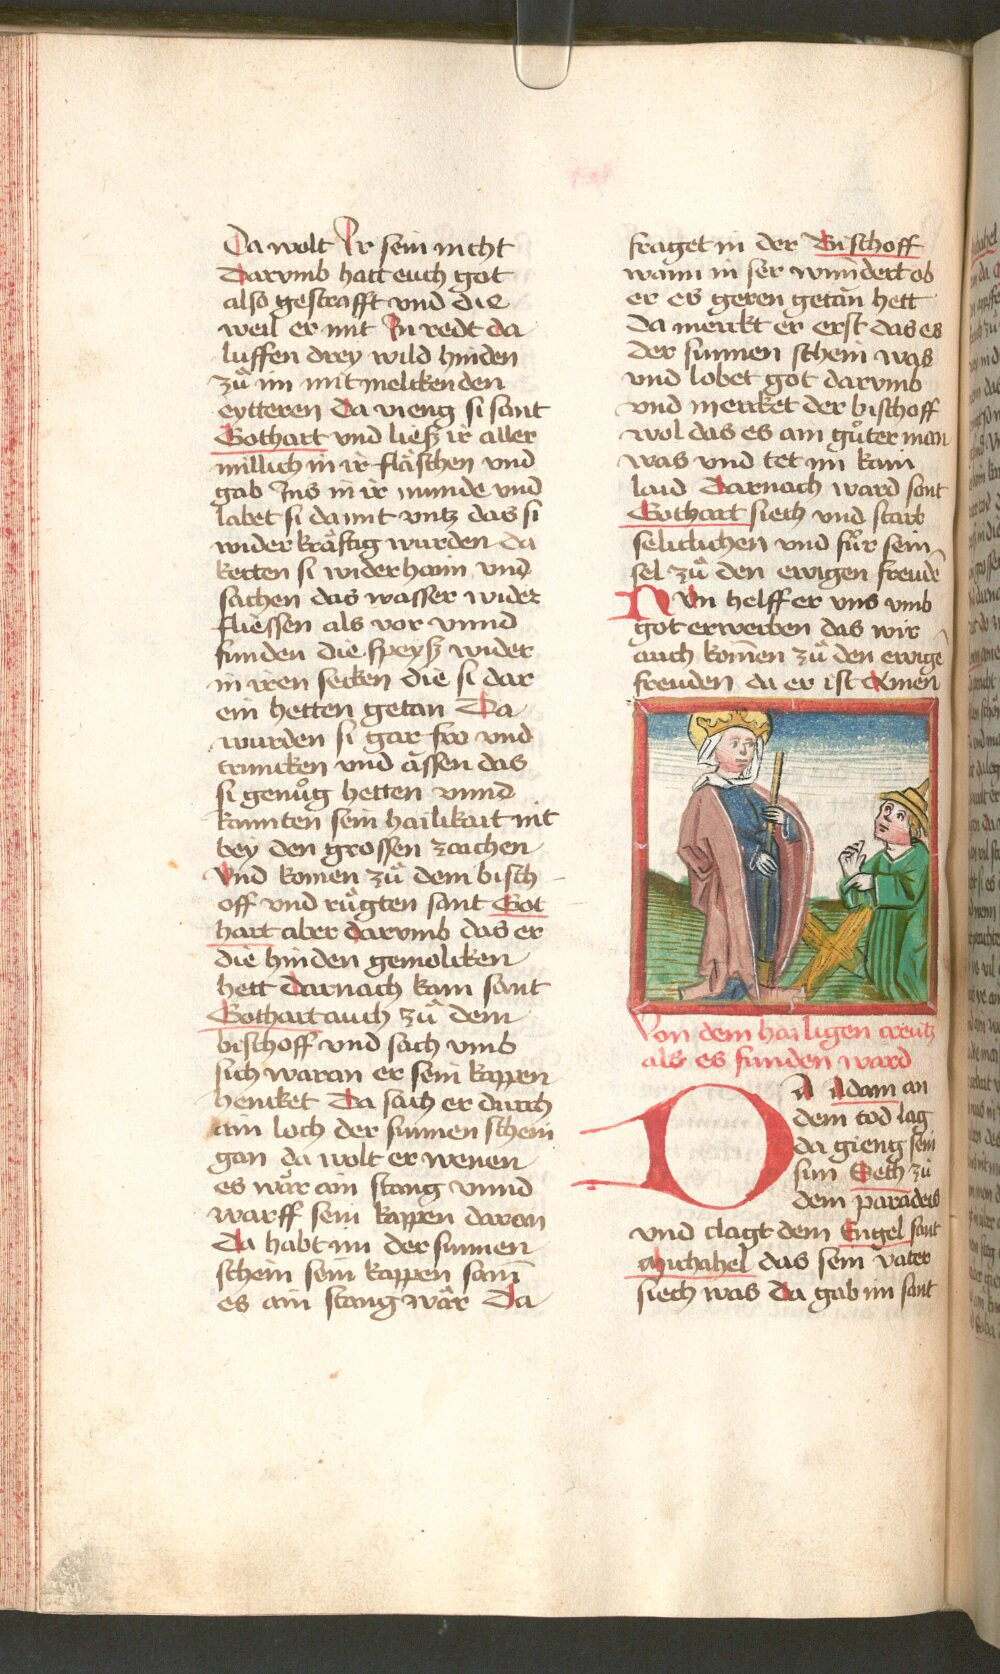 Da wolt Ir sein nicht
Darvmb hatt euch got
also gestrafft vnd die
weil er mit In redt da
luffen drey wild hinden
zů im mit melcken den
eytteren Da vieng si sant
Gothart vnd ließ ir aller
millich in ir fläschen vnd
gab Ins in ir munde vnd
labet si da mit vntz das si
wider kräftig wurden da
kerten si wider haim vnd
sachen das wasser wider
fliessen als vor vnnd
funden die speyß wider
in iren secken die si dar
ein hetten getan Da
wurden si gar fro vnd
truncken vnd ässen das
si genůg hetten vnnd
kannten sein hailikait nit
bey den grossen zaichen
Vnd komen zů dem bisch
off vnd růgten sant Got
hart aber darvmb das er
die hinden gemolcken
hett Darnach kam sant
Gothart auch zů dem
bischoff vnd sach vmb
sich waran er sein kappen
hencket Da sach er durch
ain loch der sunnen schein
gan da wolt er wenen
es wår ain stang vnnd
warff sein kappen daran
Da habt im der sunnen
schein sein kappen sam
es ain stang wår Da
fraget in der Bischoff
wann in ser wundert ob
er es geren getan hett
da merckt er erst das es
der sunnen schein was
vnd lobet got darvmb
vnd mercket der bischoff
wol das es ain gůter man
was vnd tet im kain
laid Darnach ward sant
Gothart siech vnd starb
seliclichen vnd fůr sein
sel zů den ewigen freudē
Nvn helff er vns vmb
got erwerben das wir
auch kom̄en zů den ewigē
freuden da er ist Amen
Von dem hailigen creütz
als es funden ward
Da Adam an
dem tod lag
da gieng sein
sun Seth zů
dem paradeis
vnd clagt dem Engel sant
Michahel das sein vater
siech was Da gab im sant